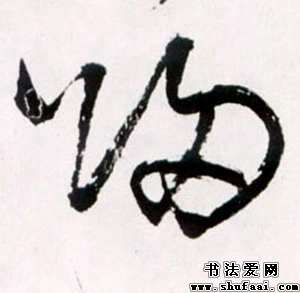 归
书法爱网
www.shufaai.com